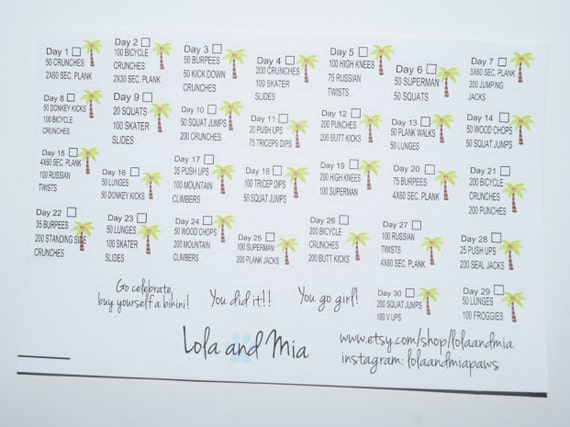 Day 1
50 CRUNCHES
2X60 SEC. PLANK
Day 2
100 BICYCLE
CRUNCHES
2X30 SEC. PLANK
Day 3
50 BURPEES
50 KICK DOWN
CRUNCHES
Day 4
200 CRUNCHES
100 SKATER
SLIDES
Day 5
100 HIGH KNEES
75 RUSSIAN
TWISTS
Day 6
50 SUPERMAN
50 SQUATS
Day 7
3X60 SEC. PLANK
200 JUMPING
JACKS
Day 8
50 DONKEY KICKS
100 BICYCLE
CRUNCHES
Day 9
20 SQUATS
100 SKATER
SLIDES
Day 10
50 SQUAT JUMPS
200 CRUNCHES
Day 11
20 PUSH UPS
75 TRICEPS DIPS
Day 12
200 PUNCHES
200 BUTT KICKS
Day 13
50 PLANK WALKS
50 LUNGES
Day 14
50 WOOD CHOPS
50 SQUAT JUMPS
Day 15
4X60 SEC. PLANK
100 RUSSIAN
TWISTS
Day 16
50 LUNGES
50 DONKEY KICKS
Day 17
35 PUSH UPS
100 MOUNTAIN
CLIMBERS
Day 18
100 TRICEP DIPS
50 SQUAT JUMPS
Day 19
200 HIGH KNEES
100 SUPERMAN
Day 20
75 BURPEES
200 CRUNCHES
Day 21
200 BICYCLE
CRUNCHES
200 PUNCHES
Day 22
35 BURPEES
200 STANDING SIDE
CRUNCHES
Day 23
50 LUNGES
100 SKATER
SLIDES
Day 24
50 WOOD CHOPS
200 MOUNTAIN
CLIMBERS
Day 25
100 SUPERMAN
200 PLANK JACKS
Day 26
200 BICYCLE
CRUNCHES
200 BUTT KICKS
Day 27
100 RUSSIAN
TWISTS
4X60 SEC. PLANK
Day 28
25 PUSH UPS
200 SEAL JACKS
Go celebrate,
buy yourself a bikini!
You did it!!
You go girl!
Day 30
200 SQUAT JUMPS
100 V UPS
Day 29
50 LUNGES
100 FROGGIES
Lola and Mia
www.etsy.com/shop/lolaandmia
instagram: lolaandmiapaws